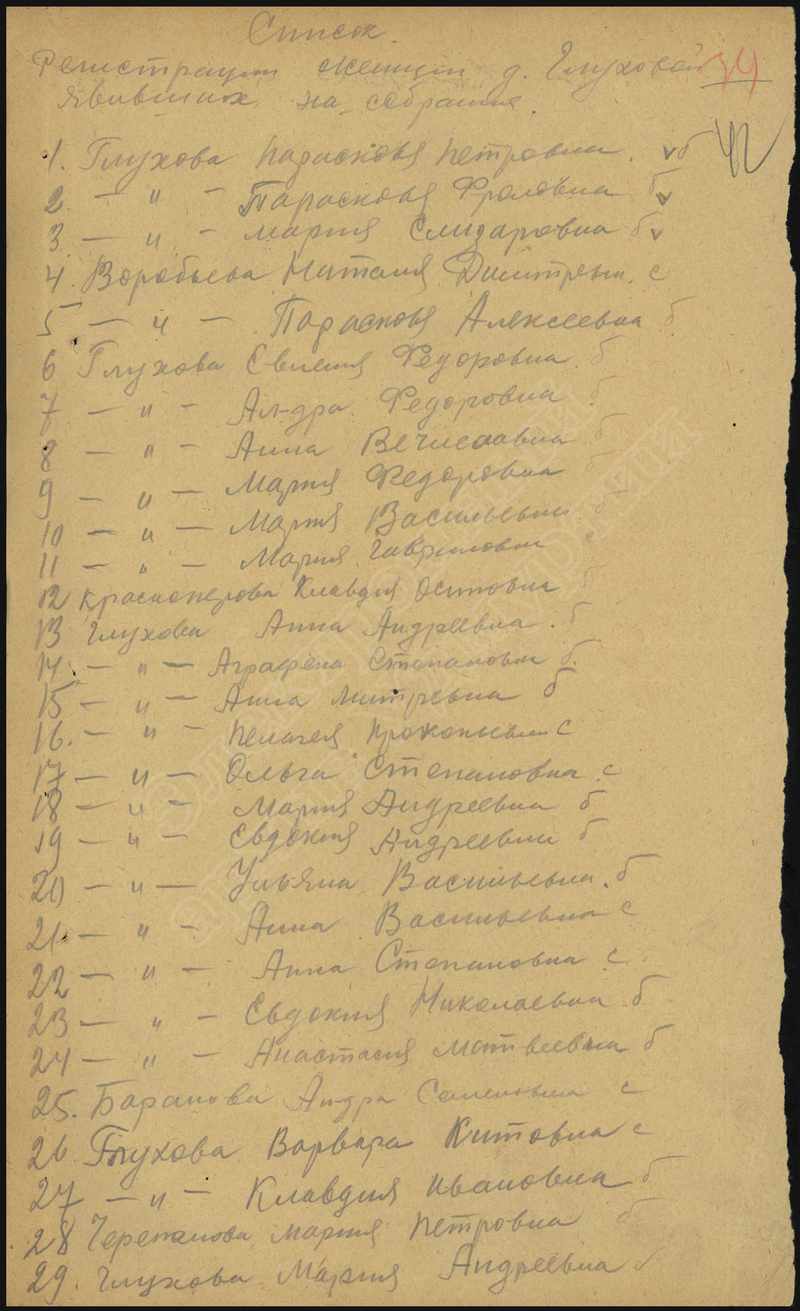 Список.
Регистрации женщин д. Глуховой 34
явившихся на собрание.
42
1. Глухова Парасковья Петровна. v б
2. — " — Парасковья Фроловна б v
3 — " — Мария Елизаровна б v
4. Воробьева Наталия Дмитрьевн. с
5 — " — Парасковья Алексеевна б
6 Глухова Евгения Федоровна. б
7 — " — Ал-дра Федоровна б
8 — " — Анна Вечиславна б
9 — " — Мария Федоровна
10 — " — Мария Васильевна
11 — " — Мария Гавриловна с
12 Красноперова Клавдия Осиповна б
13 Глухова Анна Андреевна. б
14. — " — Аграфена Степановна б.
15 — " — Анна Митревна б
16. — " — Пелагея Прокопьевн с
17 — " — Ольга Степановна с
18 — " — Мария Андреевна б
19 — " — Евдокия Андреевна б
20 — " — Ульяна Васильевна. б
21. — " — Анна Васильевна с
22 — " — Анна Степановна с.
23 — " — Евдокия Николаевна б
24 — " — Анастасия Матвеевна б
25. Баранова Ал-дра Семеновна с
26 Глухова Варвара Титовна с
27 — " — Клавдия Ивановна б
28 Черепанова Мария Петровна б
29. Глухова Мария Андреевна